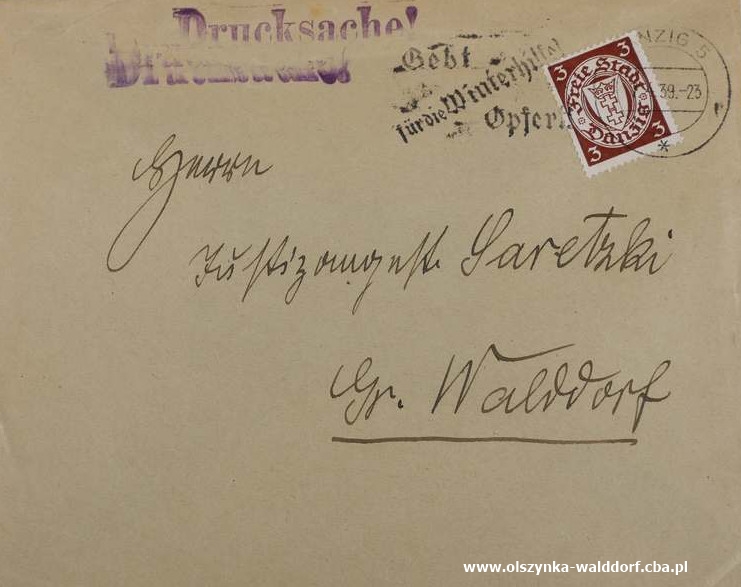 Drucksache!
Drucksache!
Gebt
für die Winterhilfe!
Opfert
3 3
Freie Stadt
Danzig
3 3
NZIG 5
39.-23
Herrn
Justizangest. Saretzki
Gr. Walddorf
www.olszynka-walddorf.cba.pl